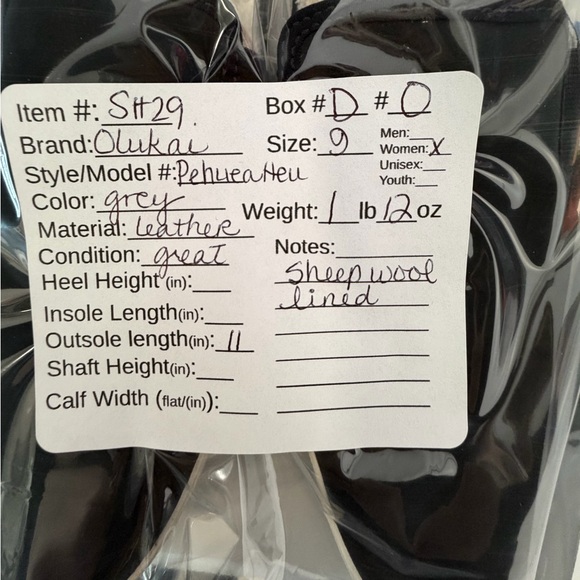 Item #: SH29. Box # D # O
Brand: Olukai Size: 9 Men:
Women: X
Style/Model #: Pehuea Heu Unisex:
Youth:
Color: grey Weight: 1 lb 12 oz
Material: leather
Condition: great Notes:
Heel Height (in): Sheep wool
lined
Insole Length(in):
Outsole length(in): 11
Shaft Height(in):
Calf Width (flat/(in)):